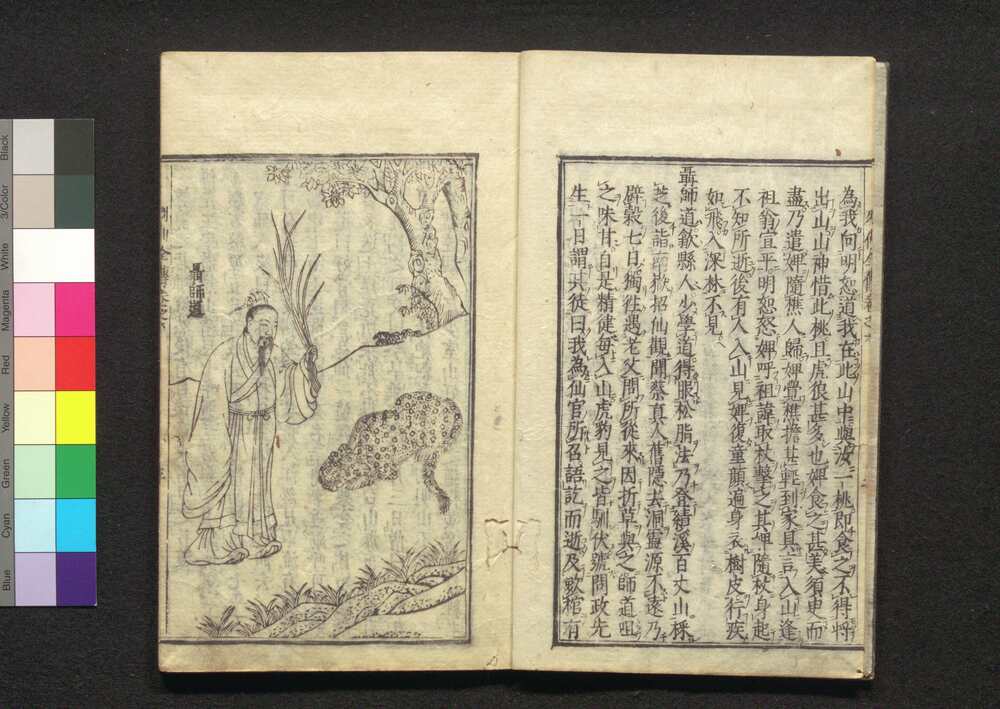 為我向明恕道我在此山中與汝一桃即食之不得將
出山山神惜此桃且虎狼甚多也婢食之甚美須臾而
盡乃遣婢隨樵人歸婢覺樵擔甚輕到家具言入山逢
祖翁宣平明恕怒婢呼祖諱取杖擊之其婢隨杖身起
不知所逝後有人入山見婢復童顏遍身衣樹皮行疾
如飛入深林不見
聶師道歙縣人少學道得服松脂法乃登績溪百丈山採
芝後詣南嶽招仙觀聞蔡真人舊隱去洞靈源不遠乃
辟穀七日獨往遇老父問所從來因折草與之師道咀
之味甘自是精健每入山虎豹見之皆馴伏號問政先
生一日謂其徒曰我為仙官所召語訖而逝及歛棺有
聶師道
Black
3/Color
White
Magenta
Red
Yellow
Green
Cyan
Blue